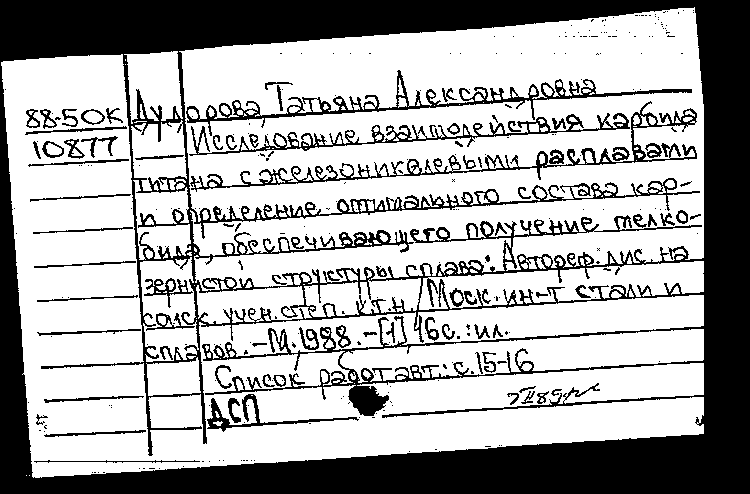 88-5ОК Дудорова Татьяна Александровна
10877 Исследование взаимодействия карбида
титана с железоникелевыми расплавами
и определение оптимального состава кар-
бида, обеспечивающего получение мелко-
зернистой структуры сплава: Автореф. дис. на
соиск. учен. степ. к.т.н. / Моск. ин-т стали и
сплавов. - М. 1988. - [1] 16 с. : ил.
Список работ авт.: с. 15-16
ДСП